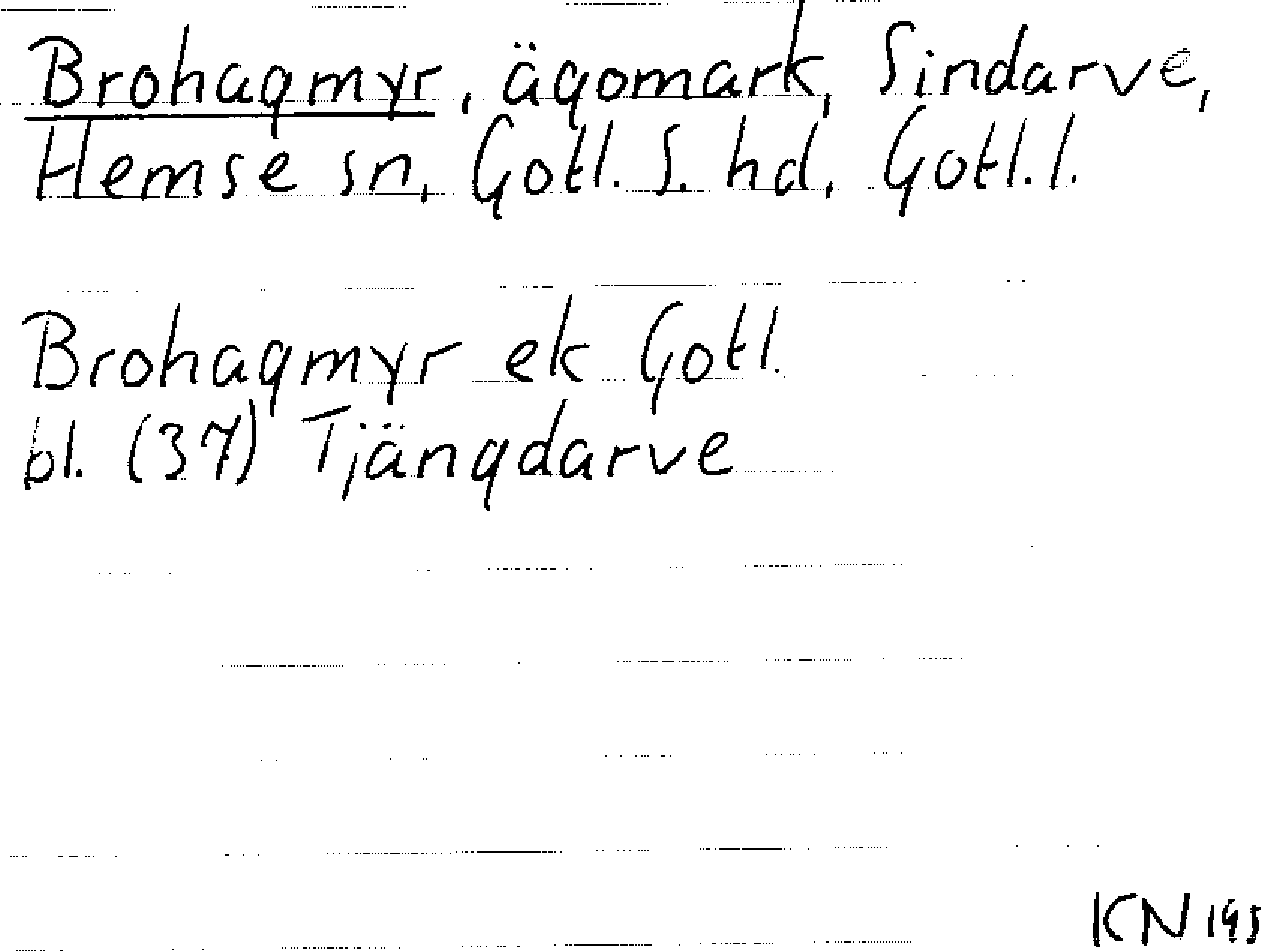 Brohagmyr, ägomark, Sindarve,
Hemse sn, Gotl. S. hd, Gotl. l.
Brohagmyr ek Gotl.
bl. (37) Tjängdarve
KN 195